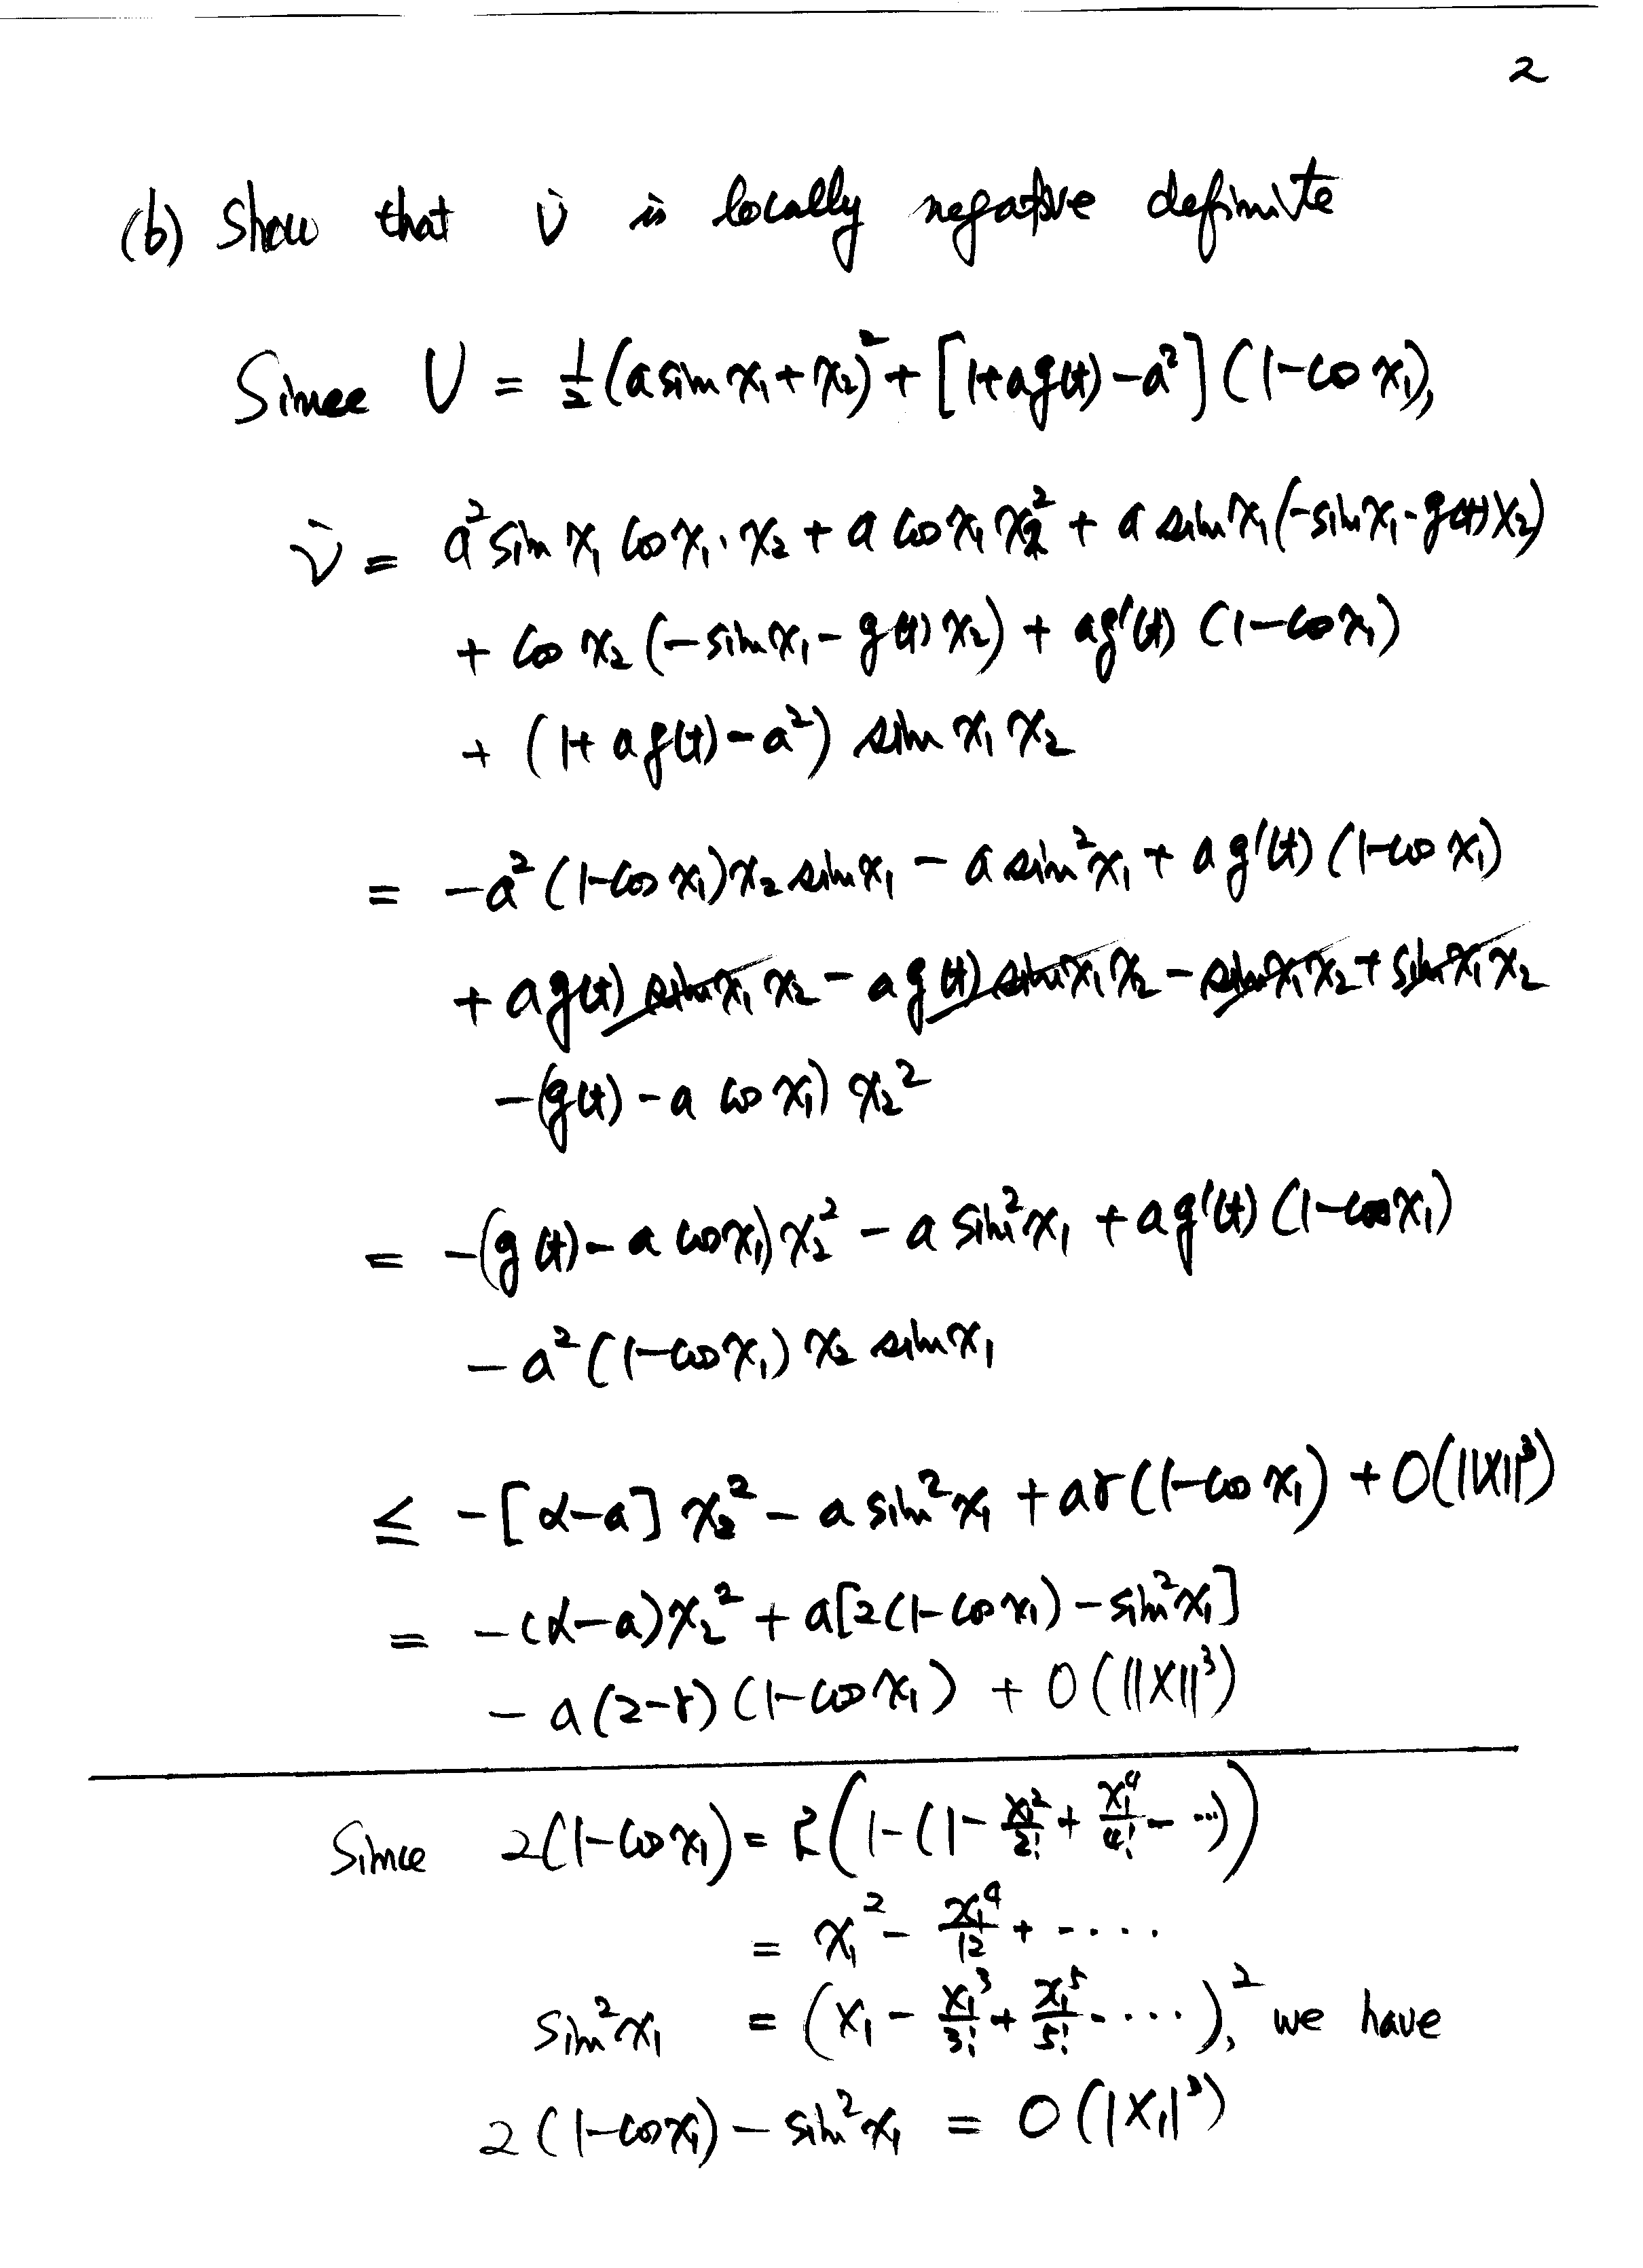 2
(b) Show that V̇ is locally negative definite
Since V = ½(a sin x₁ + x₂)² + [1+ag(t) − a²] (1−cos x₁),
V̇ = a² sin x₁ cos x₁ · x₂ + a cos x₁ x₂² + a sin x₁ (−sin x₁ − g(t) x₂)
+ cos x₂ (−sin x₁ − g(t) x₂) + ag'(t) (1−cos x₁)
+ (1+ a g(t) − a²) sin x₁ x₂
= −a² (1−cos x₁) x₂ sin x₁ − a sin² x₁ + a g'(t) (1−cos x₁)
+ ag(t) sin x₁ x₂ − ag(t) sin x₁ x₂ − sin x₁ x₂ + sin x₁ x₂
−(g(t) − a cos x₁) x₂²
= −(g(t) − a cos x₁) x₂² − a sin² x₁ + ag'(t) (1−cos x₁)
− a² (1−cos x₁) x₂ sin x₁
≤ −[α−a] x₂² − a sin² x₁ + aγ (1−cos x₁) + O(||X||³)
= −(α−a) x₂² + a[2(1−cos x₁) − sin² x₁]
− a(2−γ) (1−cos x₁) + O(||X||³)
Since 2(1−cos x₁) = 2(1−(1− x₁²/2! + x₁⁴/4! − ···))
= x₁² − x₁⁴/12 + ····
sin² x₁ = (x₁ − x₁³/3! + x₁⁵/5! − ····)², we have
2(1−cos x₁) − sin² x₁ = O(|x₁|³)